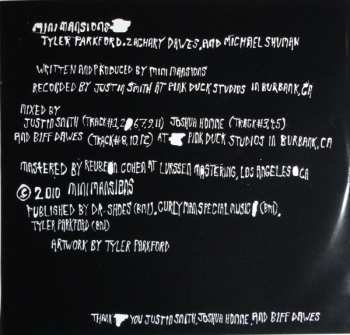 MINI MANSIONS
TYLER PARKFORD, ZACHARY DAWES, AND MICHAEL SHUMAN
WRITTEN AND PRODUCED BY MINI MANSIONS
RECORDED BY JUSTIN SMITH AT PINK DUCK STUDIOS IN BURBANK, CA
MIXED BY
JUSTIN SMITH (TRACK#1,2,6,7,9,11) JOSHUA HOMME (TRACK#3,4,5)
AND BIFF DAWES (TRACK#8,10,12) AT PINK DUCK STUDIOS IN BURBANK, CA
MASTERED BY REUBEN COHEN AT LURSSEN MASTERING, LOS ANGELES CA
© 2010 MINI MANSIONS
PUBLISHED BY DR. SHOES (BMI), CURLY MAN SPECIAL MUSIC (BMI),
TYLER PARKFORD (BMI)
ARTWORK BY TYLER PARKFORD
THANK YOU JUSTIN SMITH, JOSHUA HOMME, AND BIFF DAWES